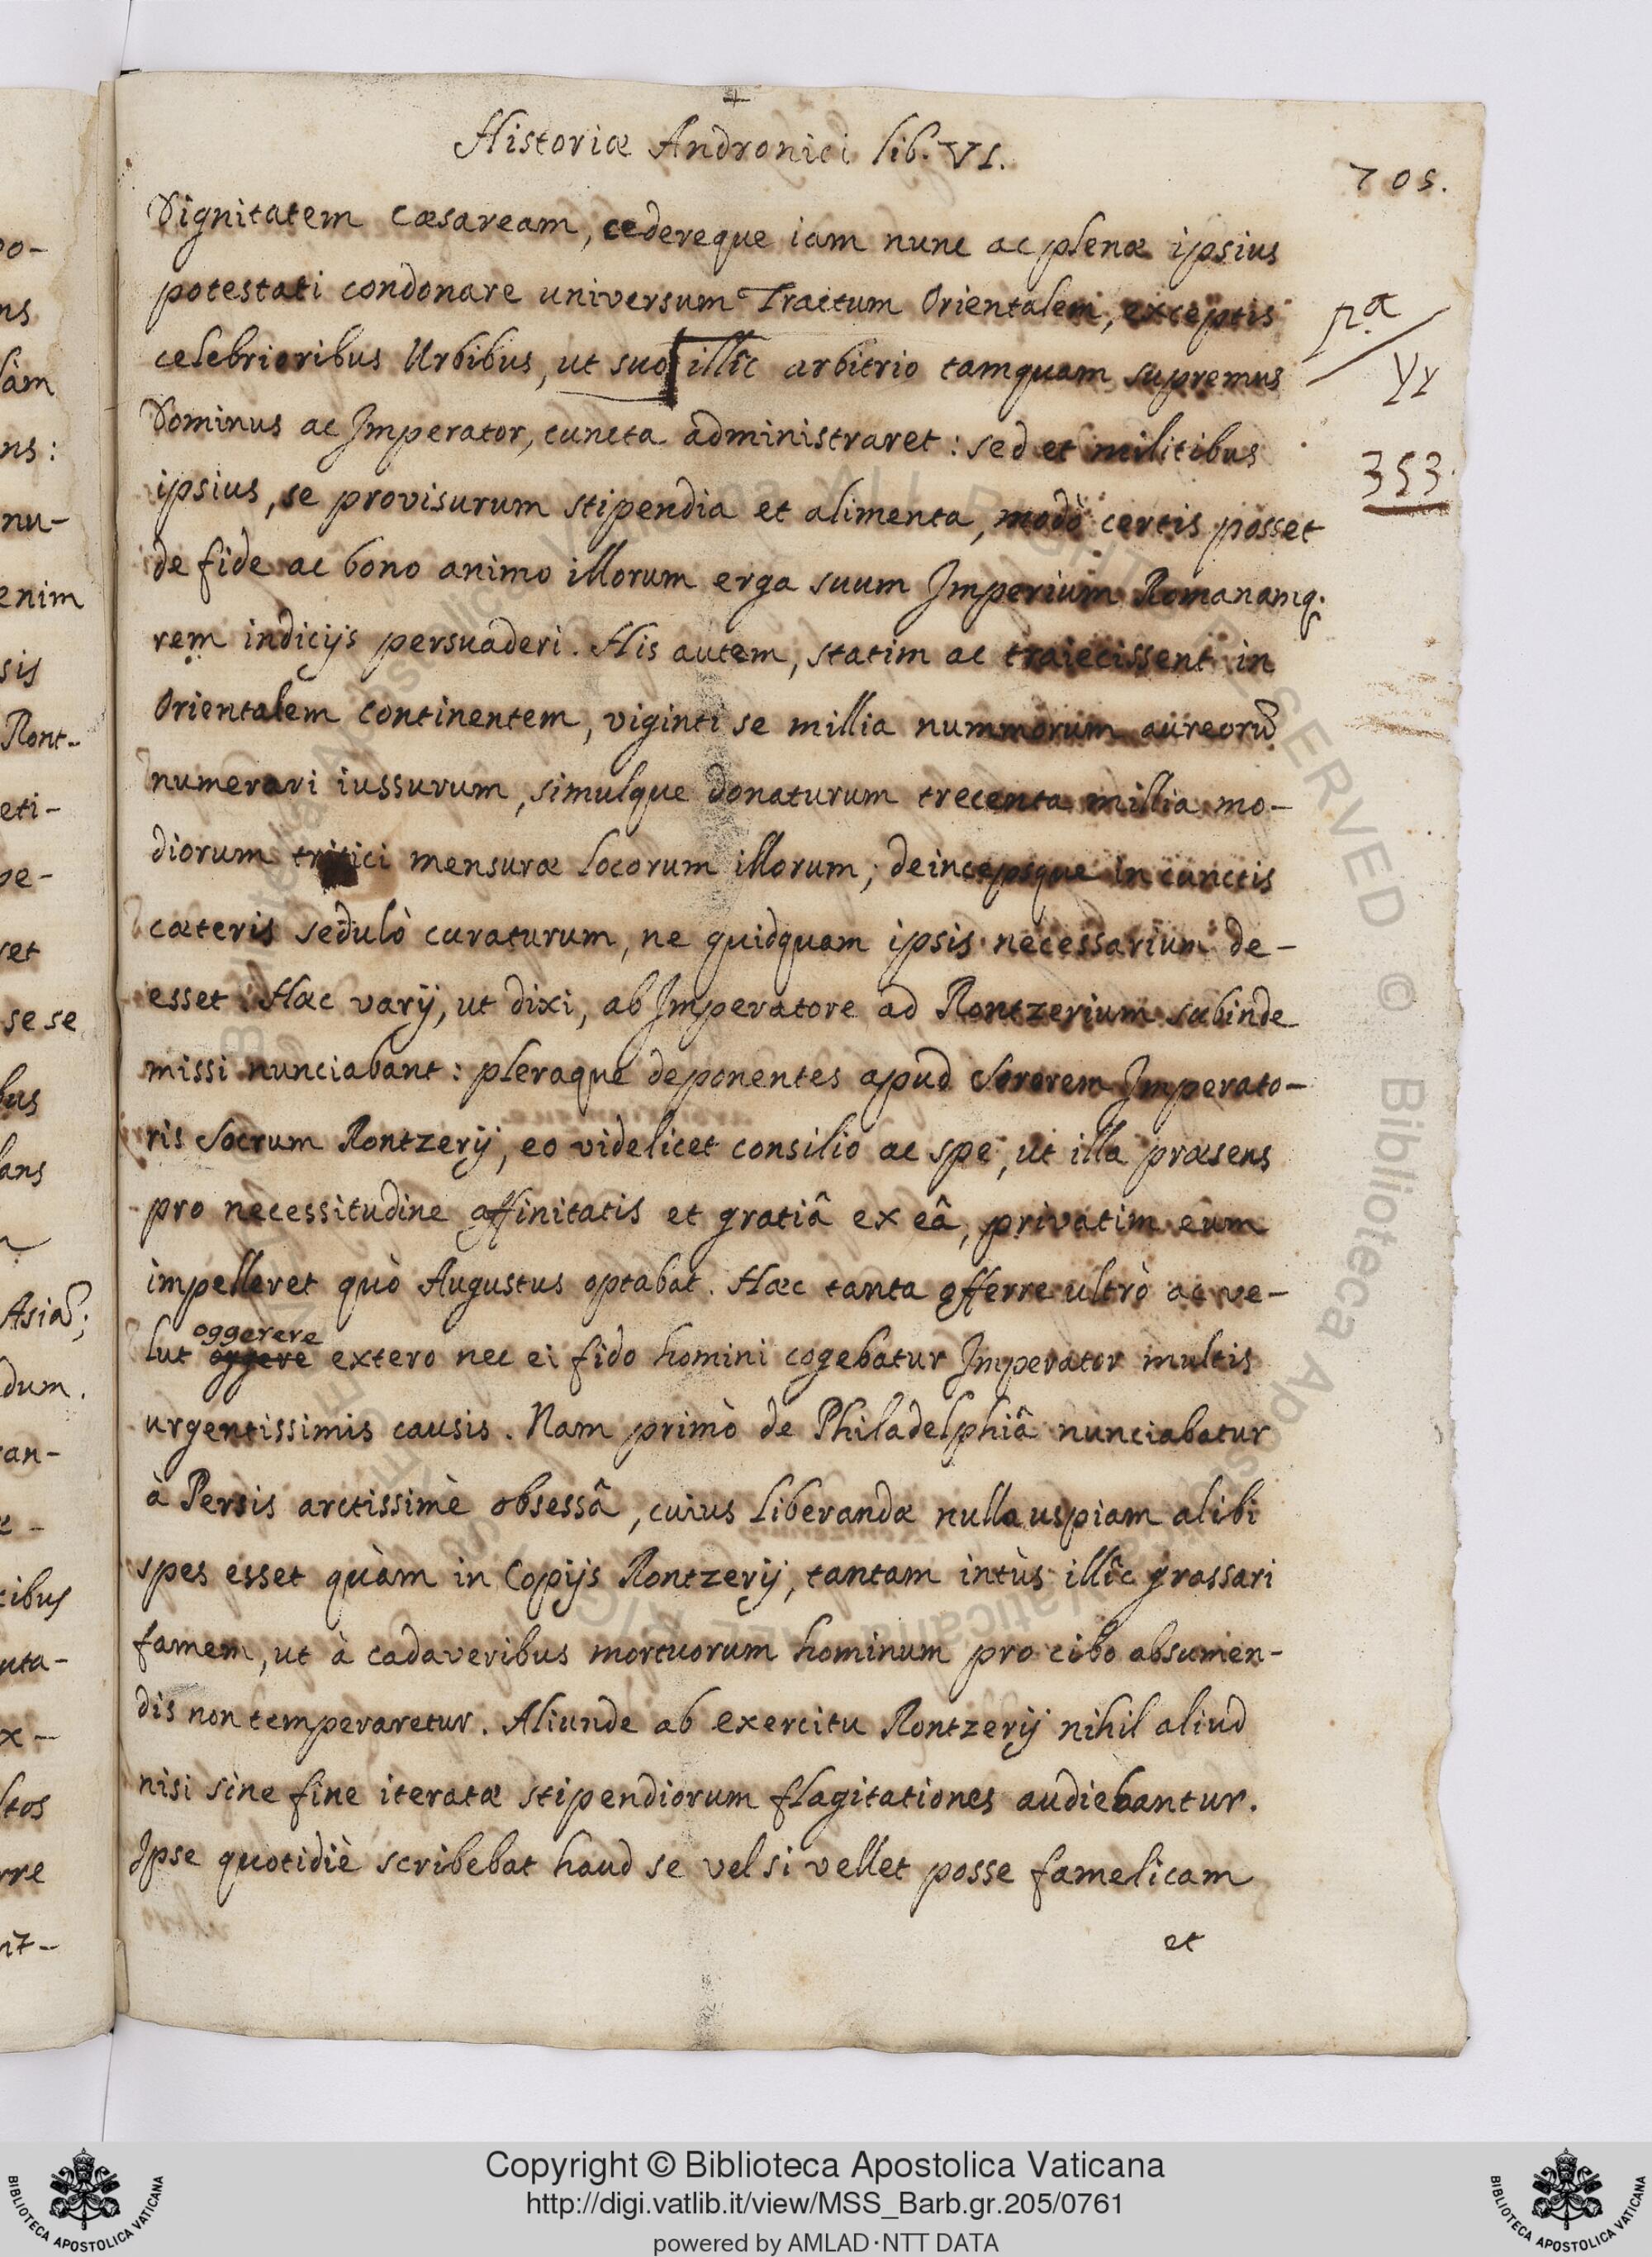 Historiæ Andronici lib. VI.
705.
Dignitatem Cæsaream, cedereque iam nunc ac plenæ ipsius
potestati condonare universum Tractum Orientalem, exceptis
celebrioribus Urbibus, ut suo illîc arbitrio tamquam supremus
Dominus ac Imperator, cuncta administraret: sed et militibus
ipsius, se provisurum stipendia et alimenta, modò certis posset
de fide ac bono animo illorum erga suum Imperium Romanamq.
rem indicijs persuaderi. His autem, statim ac traiecissent in
Orientalem Continentem, viginti se millia nummorum aureorũ
numerari iussurum, simulque donaturum trecenta millia mo-
diorum tritici mensuræ locorum illorum; deincepsque in cunctis
cæteris sedulò curaturum, ne quidquam ipsis necessarium de-
esset. Hæc varij, ut dixi, ab Imperatore ad Rontzerium subinde
missi nunciabant: pleraque deponentes apud Sororem Imperato-
ris Socrum Rontzerij, eo videlicet consilio ac spe, ut illa præsens
pro necessitudine affinitatis et gratiâ ex eâ, privatim eum
impelleret quò Augustus optabat. Hæc tanta offerre ultrò ac ve-
oggerere
lut oggere extero nec ei fido homini cogebatur Imperator multis
urgentissimis causis. Nam primò de Philadelphiâ nunciabatur
à Persis arctissimè obsessâ, cuius liberandæ nulla uspiam alibi
spes esset quàm in Copijs Rontzerij, tantam intùs illîc grassari
famem, ut à cadaveribus mortuorum hominum pro cibo absumen-
dis non temperaretur. Aliunde ab exercitu Rontzerij nihil aliud
nisi sine fine iteratæ stipendiorum flagitationes audiebantur.
Ipse quotidiè scribebat haud se vel si vellet posse famelicam
et
pª
Yy
353.
po-
ns
làm
ns:
nu-
enim
sis
Ront-
eti-
pe-
ret
se se
bus
lans
Asiã;
dum.
ran-
tibus
uta-
x-
ltos
rre
nt-
Copyright © Biblioteca Apostolica Vaticana
http://digi.vatlib.it/view/MSS_Barb.gr.205/0761
powered by AMLAD·NTT DATA
BIBLIOTECA APOSTOLICA VATICANA
BIBLIOTECA APOSTOLICA VATICANA